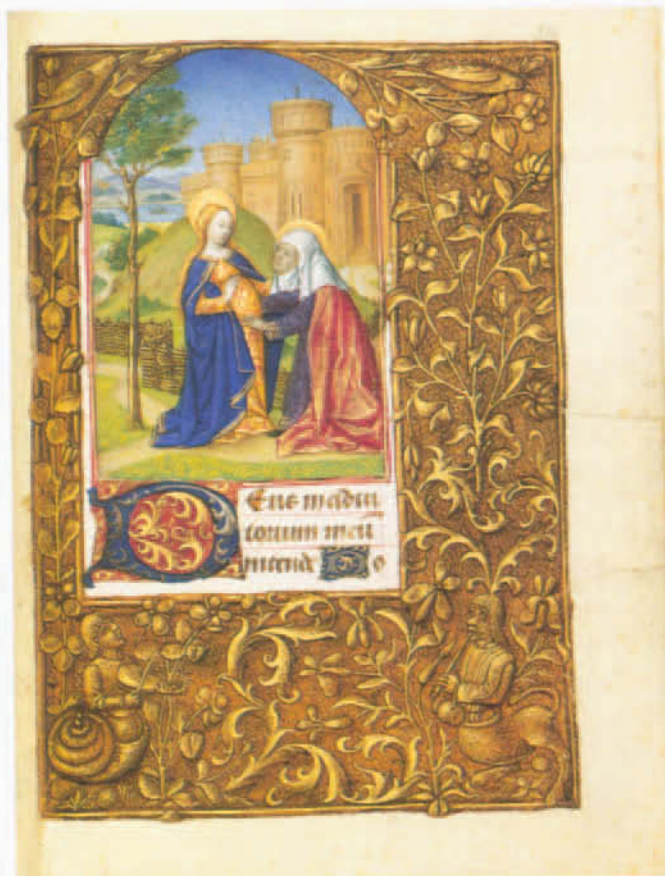 Deus in adiu
torium meu
intende Do